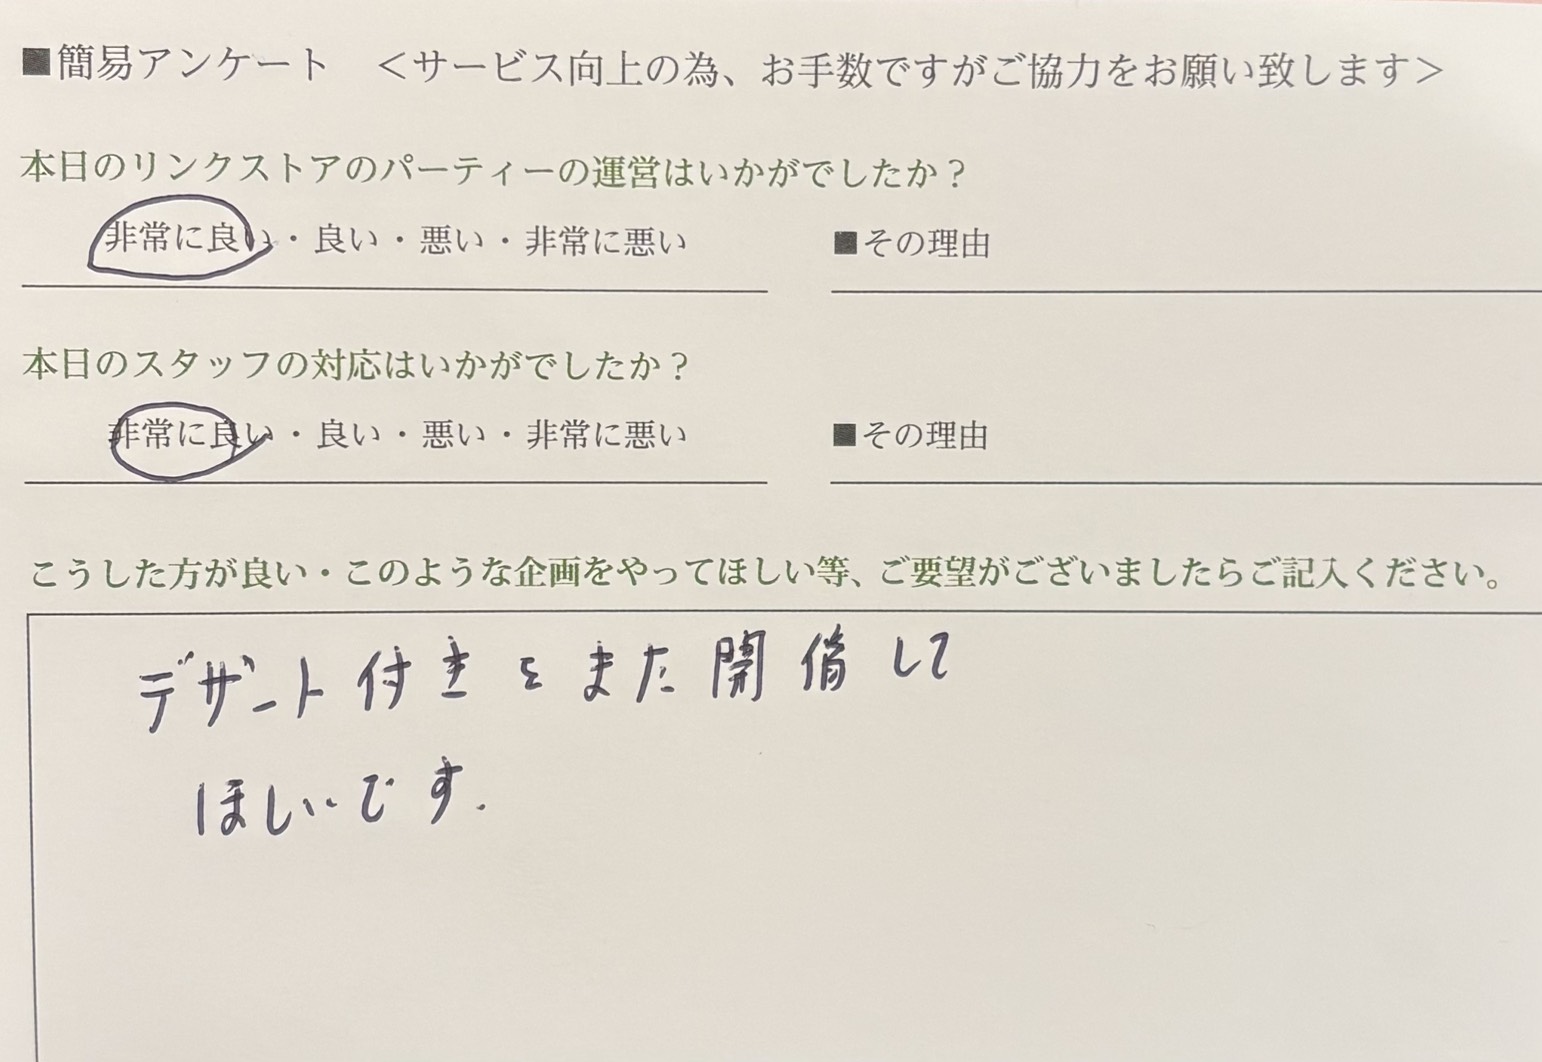 ■簡易アンケート　＜サービス向上の為、お手数ですがご協力をお願い致します＞
本日のリンクストアのパーティーの運営はいかがでしたか？
非常に良い・良い・悪い・非常に悪い　■その理由
本日のスタッフの対応はいかがでしたか？
非常に良い・良い・悪い・非常に悪い　■その理由
こうした方が良い・このような企画をやってほしい等、ご要望がございましたらご記入ください。
デザート付きをまた開催して
ほしいです.